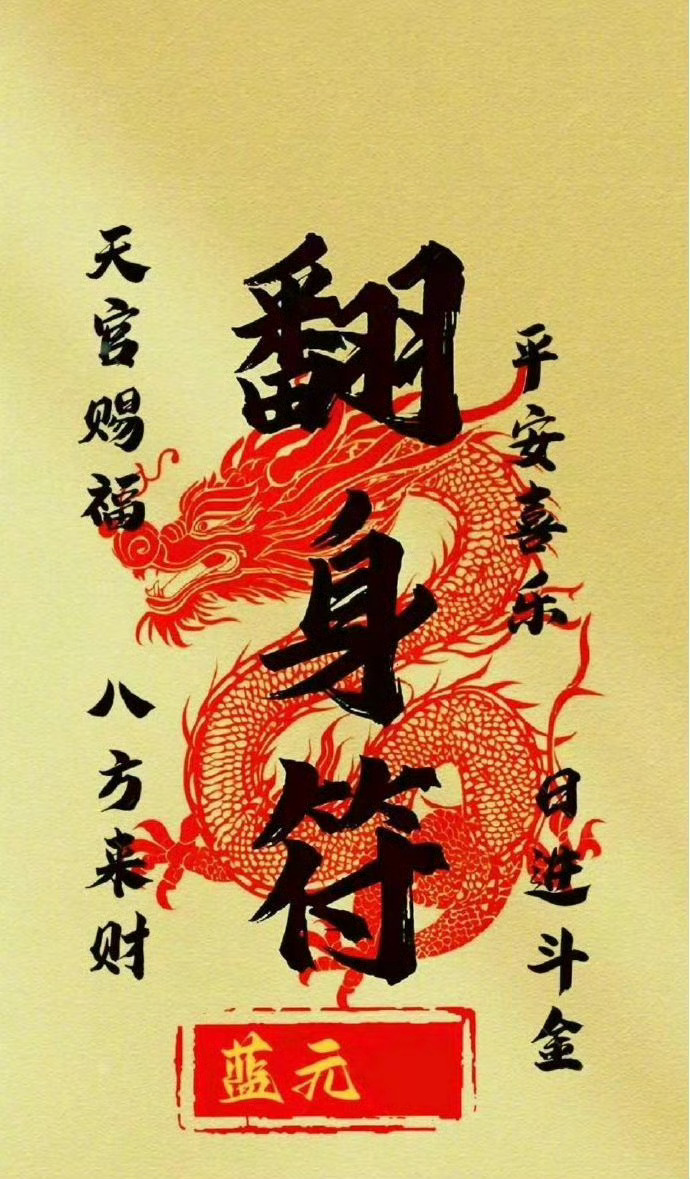 翻身符
天官赐福
八方来财
平安喜乐
日进斗金
蓝元